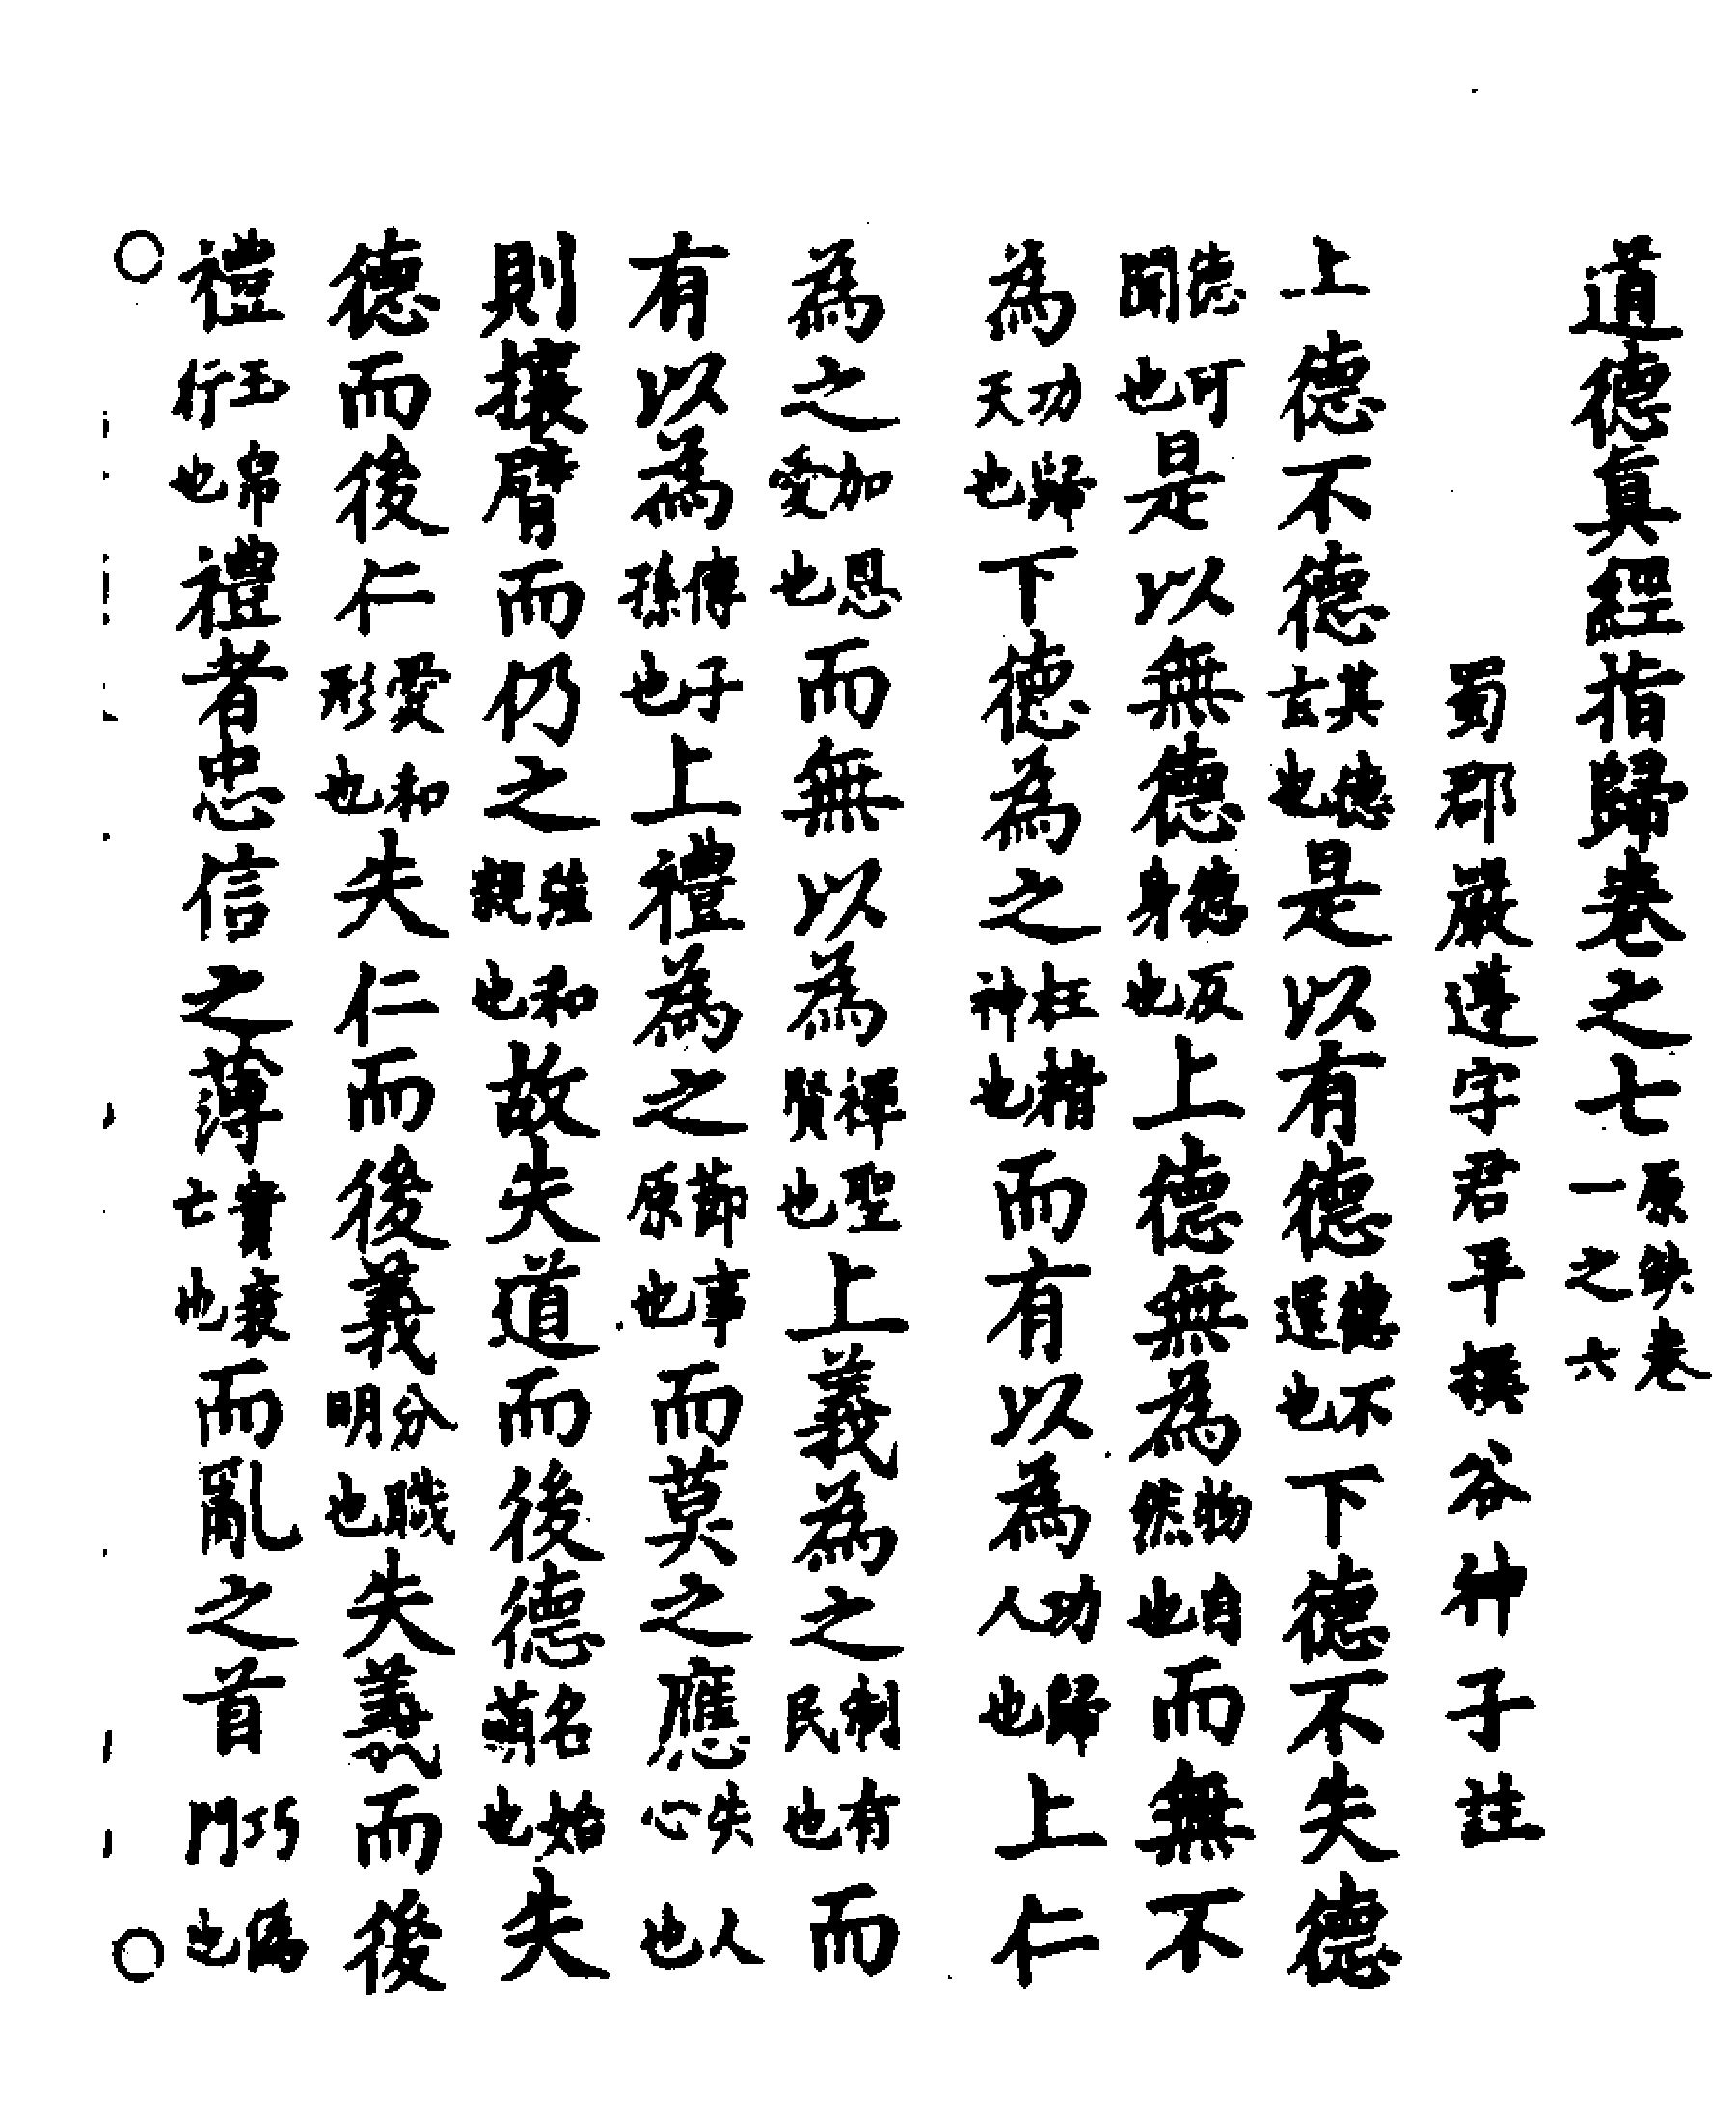 道德真經指歸卷之七原缺卷一之六
蜀郡嚴遵字君平撰谷神子註
上德不德其德玄也是以有德德不逞也下德不失德
德可聞也是以無德德反身也上德無為物自然也而無不
為功歸天也下德為之枉精神也而有以為功歸人也上仁
為之加恩愛也而無以為禪聖賢也上義為之制有民也而
有以為傳子孫也上禮為之節事原也而莫之應失人心也
則攘臂而仍之強和親也故失道而後德名始萌也失
德而後仁愛和形也失仁而後義分職明也失義而後
禮玉帛行也禮者忠信之薄實衰亡也而亂之首巧偽門也